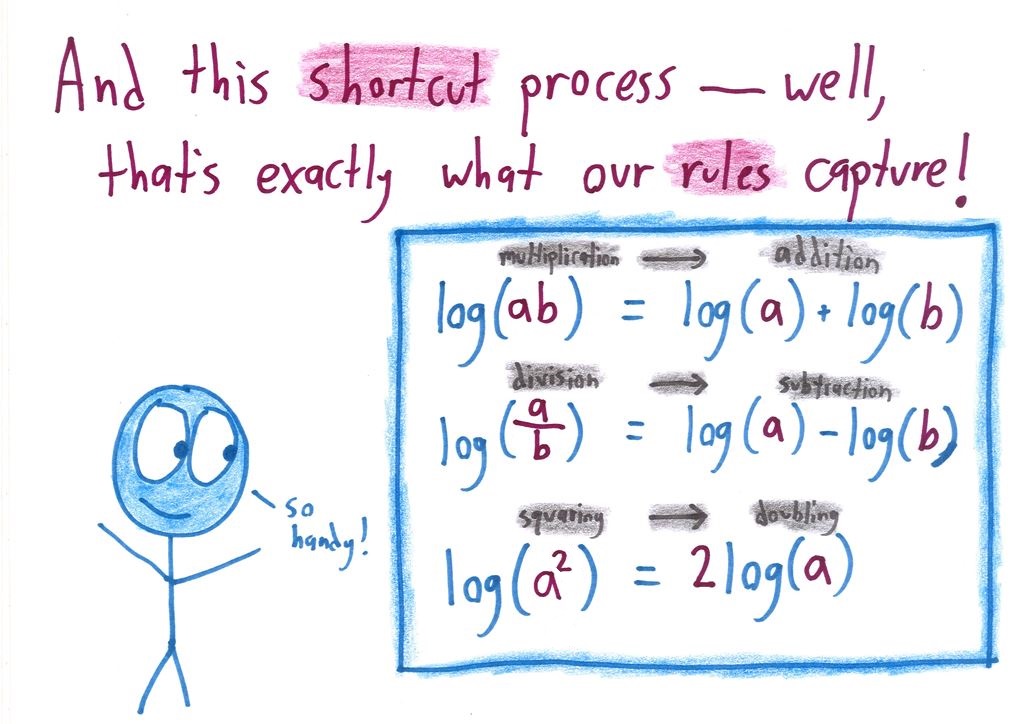 And this shortcut process — well,
that's exactly what our rules capture!
multiplication → addition
log(ab) = log(a) + log(b)
division → subtraction
log(a/b) = log(a) - log(b)
squaring → doubling
log(a²) = 2log(a)
so
handy!